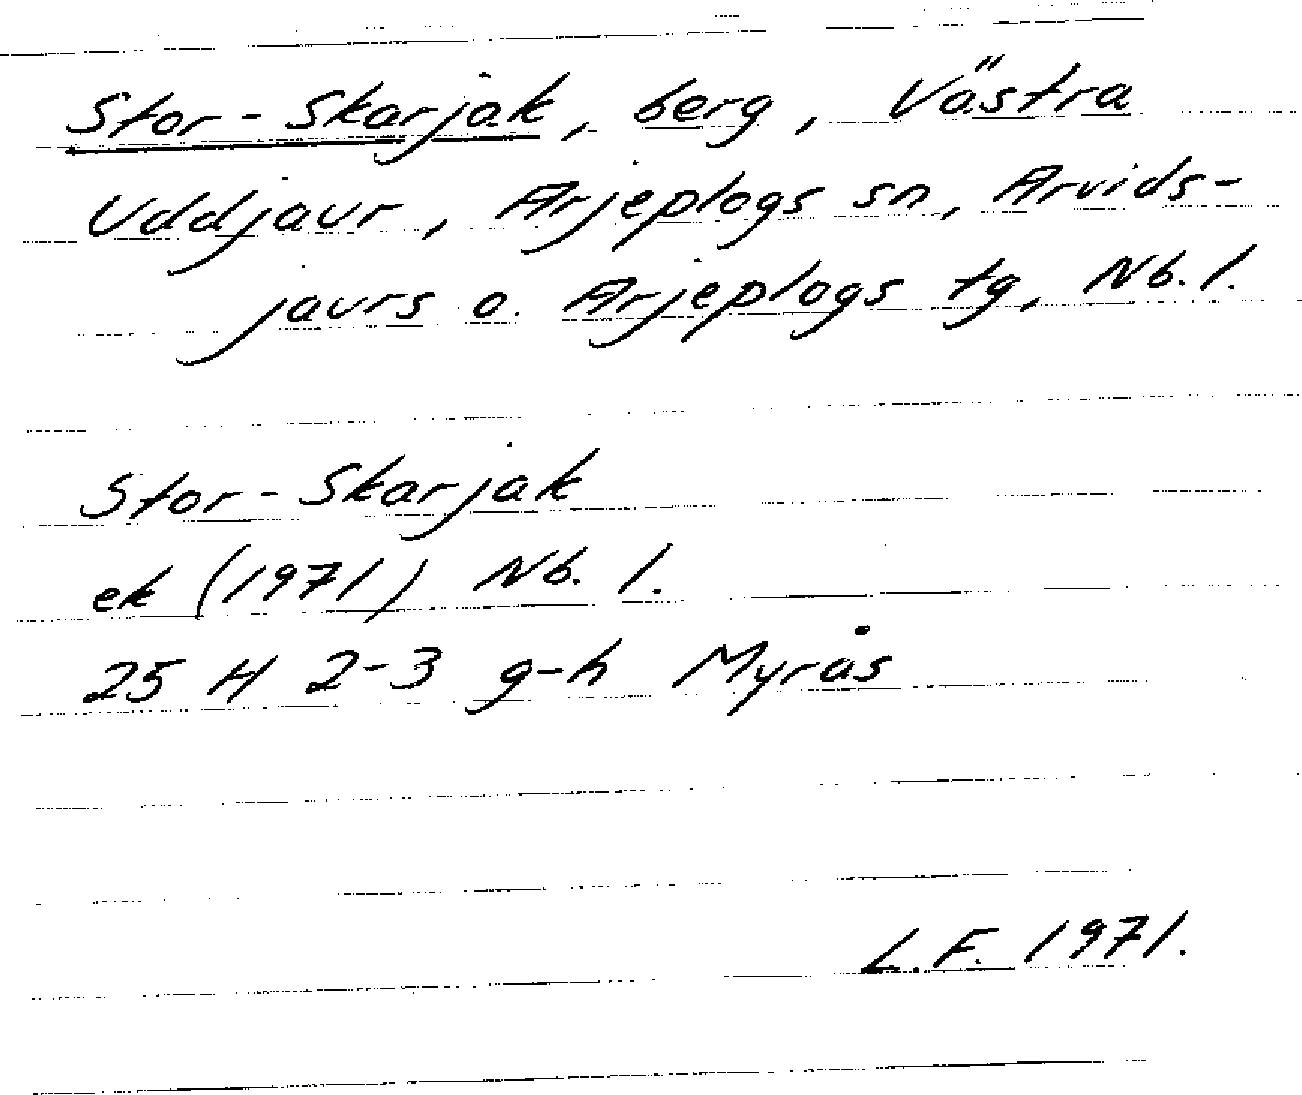 Stor-Skarjak, berg, Västra
Uddjaur, Arjeplogs sn, Arvids-
jaurs o. Arjeplogs tg, Nb. l.
Stor-Skarjak
ek (1971) Nb. l.
25 H 2-3 g-h Myrås
L.F. 1971.